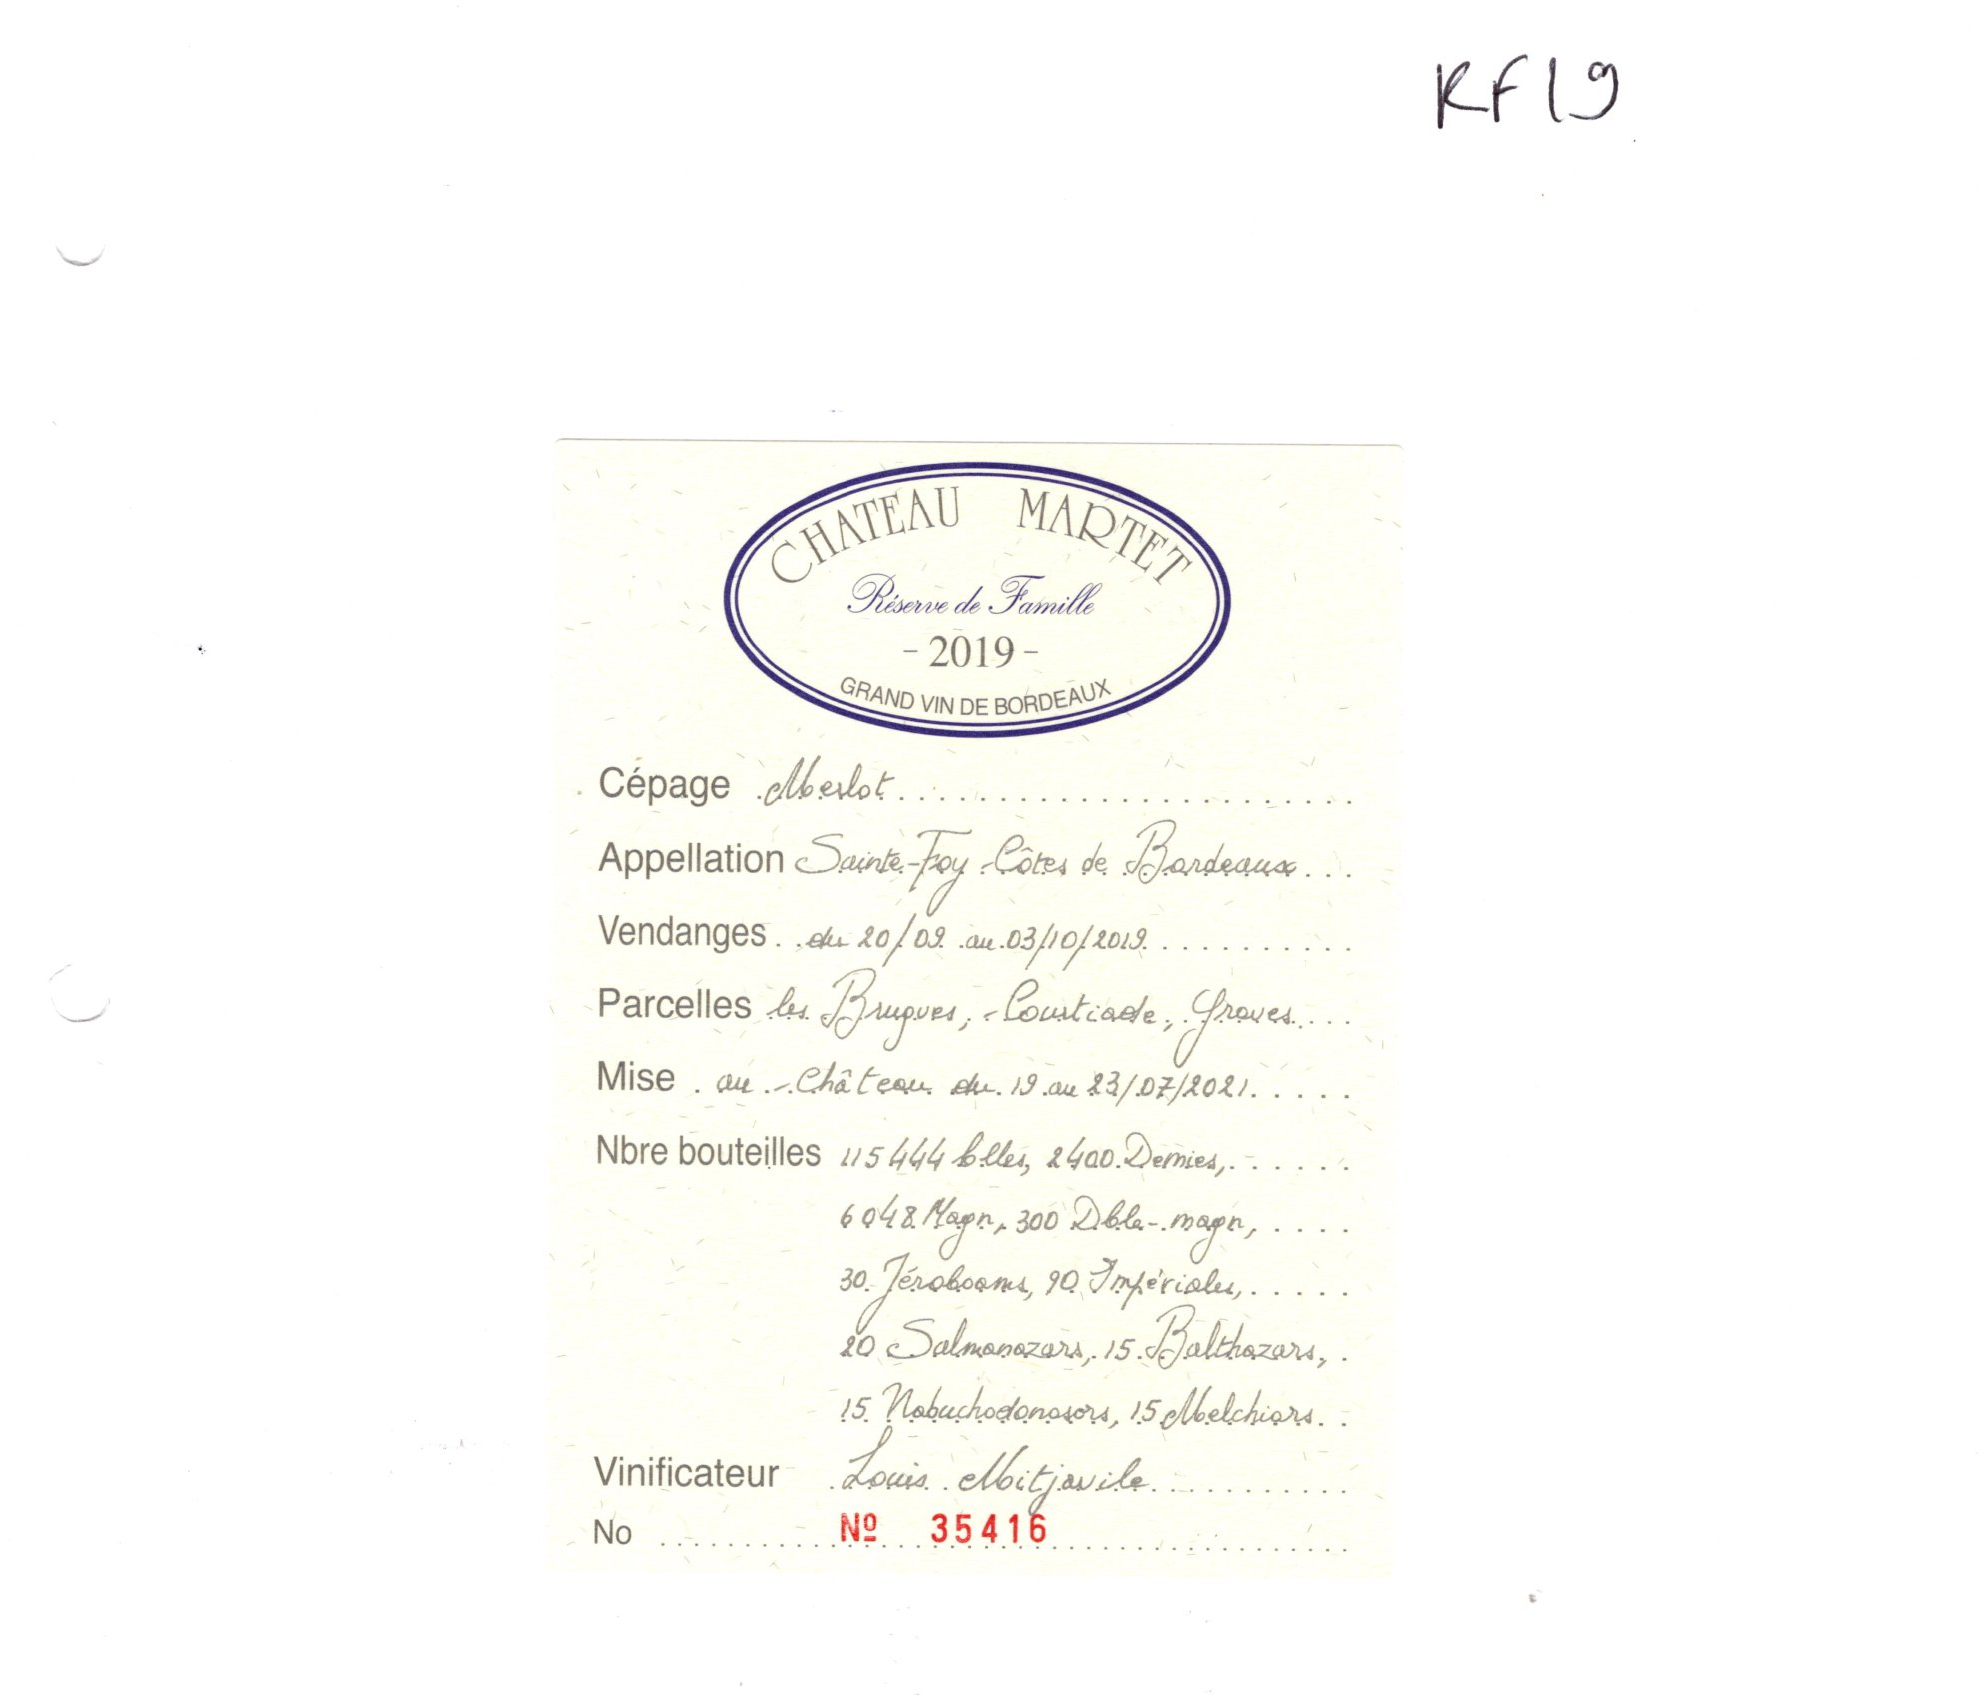 RF19
CHATEAU MARTET
Réserve de Famille
- 2019 -
GRAND VIN DE BORDEAUX
Cépage Merlot
Appellation Sainte-Foy Côtes de Bordeaux
Vendanges du 20/09 au 03/10/2019
Parcelles les Brugues, Coustiade, Graves
Mise au Château du 19 au 23/07/2021
Nbre bouteilles 115444 blles, 2400 Demies,
6048 Magn, 300 Dble-magn,
30 Jéroboams, 90 Impériales,
20 Salmanazars, 15 Balthazars,
15 Nabuchodonosors, 15 Melchiors
Vinificateur Louis Mitjavile
No Nº 35416